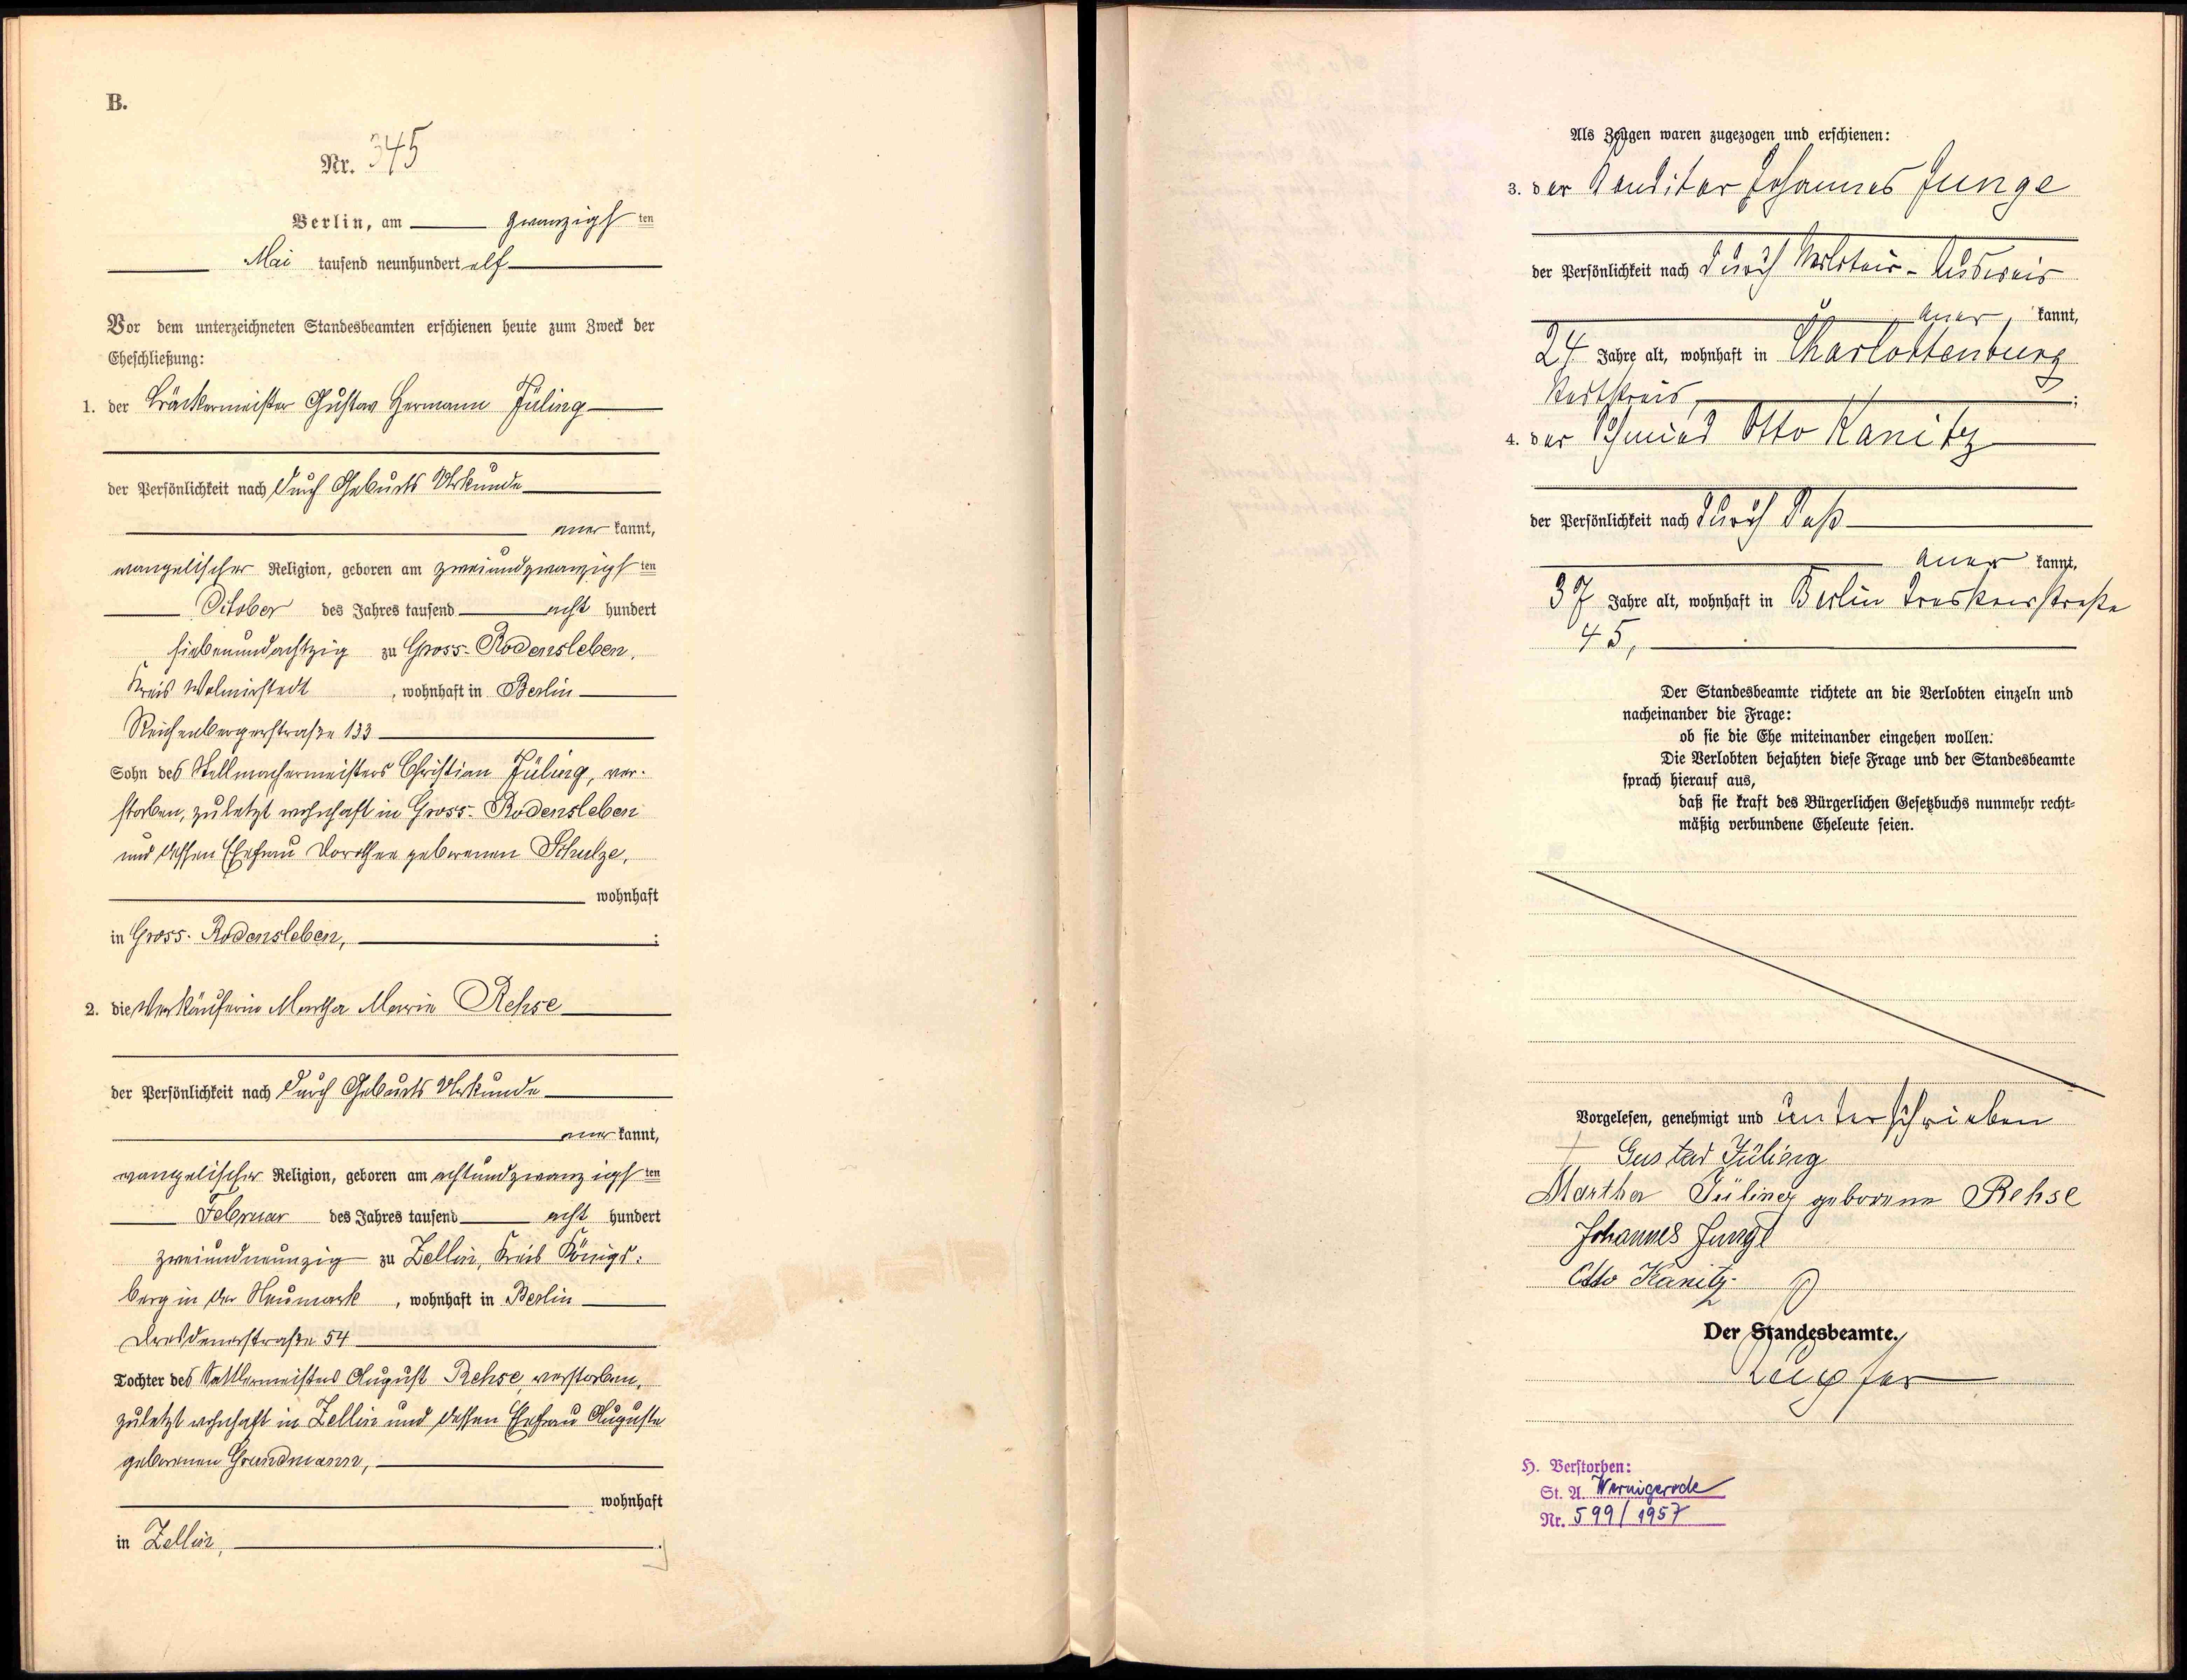 B.
Nr. 345
Berlin, am zwanzigsten
Mai tausend neunhundert elf
Vor dem unterzeichneten Standesbeamten erschienen heute zum Zweck der
Eheschließung:
1. der Bäckermeister Gustav Hermann Jüling
der Persönlichkeit nach durch Geburts Urkunde
aner kannt,
evangelischer Religion, geboren am zweiundzwanzigsten
October des Jahres tausend acht hundert
siebenundachtzig zu Gross-Rodensleben,
Kreis Wolmirstedt, wohnhaft in Berlin
Reichenbergerstraße 133
Sohn des Stellmachermeisters Christian Jüling, ver-
storben, zuletzt wohnhaft in Gross-Rodensleben
und dessen Ehefrau Dorothee geborenen Schulze,
wohnhaft
in Gross-Rodensleben, ;
2. die Verkäuferin Martha Marie Rehse
der Persönlichkeit nach durch Geburts Urkunde
aner kannt,
evangelischer Religion, geboren am achtundzwanzigsten
Februar des Jahres tausend acht hundert
zweiundneunzig zu Zellin, Kreis Königs-
berg in der Neumark, wohnhaft in Berlin
Dresdenerstraße 54
Tochter des Sattlermeisters August Rehse, verstorben,
zuletzt wohnhaft in Zellin und dessen Ehefrau Auguste
geborenen Grundmann,
wohnhaft
in Zellin,
Als Zeugen waren zugezogen und erschienen:
3. der Konditor Johannes Junge
der Persönlichkeit nach durch Militair-Ausweis
aner kannt,
24 Jahre alt, wohnhaft in Charlottenburg
Stadtkreis, ;
4. der Schmied Otto Kanitz
der Persönlichkeit nach durch Paß
aner kannt,
37 Jahre alt, wohnhaft in Berlin Treskowstraße
45,
Der Standesbeamte richtete an die Verlobten einzeln und
nacheinander die Frage:
ob sie die Ehe miteinander eingehen wollen.
Die Verlobten bejahten diese Frage und der Standesbeamte
sprach hierauf aus,
daß sie kraft des Bürgerlichen Gesetzbuchs nunmehr recht-
mäßig verbundene Eheleute seien.
Vorgelesen, genehmigt und unterschrieben
Gustav Jüling
Martha Jüling geborene Rehse
Johannes Junge
Otto Kanitz
Der Standesbeamte.
H. Verstorben:
St. A. Wernigerode
Nr. 599/1957